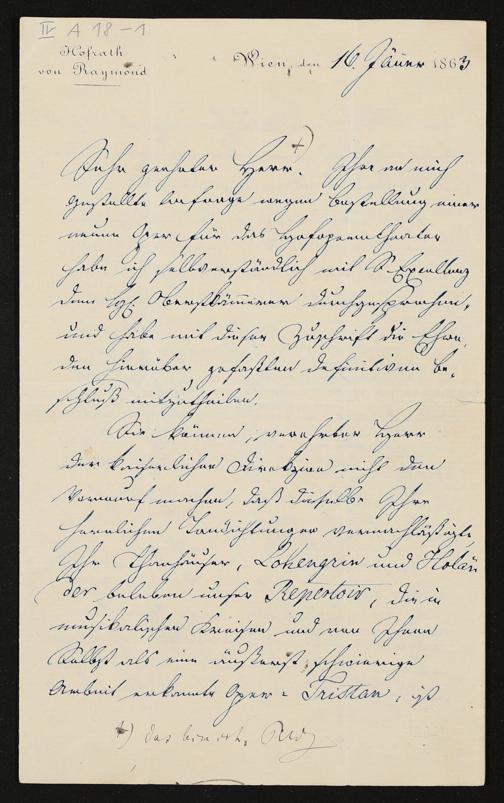 IV A 18-1
Hofrath
von Raymond
Wien, den 16. Jäner 1863
+)
Sehr geehrter Herr. Ihre an mich
gestellte Anfrage wegen Bestellung einer
neuen Oper für das Hofoperntheater
habe ich selbverständlich mit Sr Excellenz
dem Oberstkämmerer durchgesprochen,
und habe mit dieser Zuschrift die Ehre,
den hierüber gefaßten definitiven Be-
schluß mitzutheilen.
Sie können, verehrter Herr
der kaiserlichen Direkzion nicht den
Vorwurf machen, daß dieselbe Ihre
herrlichen Tondichtungen vernachläßigte,
Ihr Thanhäuser, Lohengrin und Holän
der beleben unser Repertoir, die in
musikalischen Kreisen und von Ihnen
Selbst als eine äußerst schwierige
Arbeit erkannte Oper = Tristan, ist
+) das